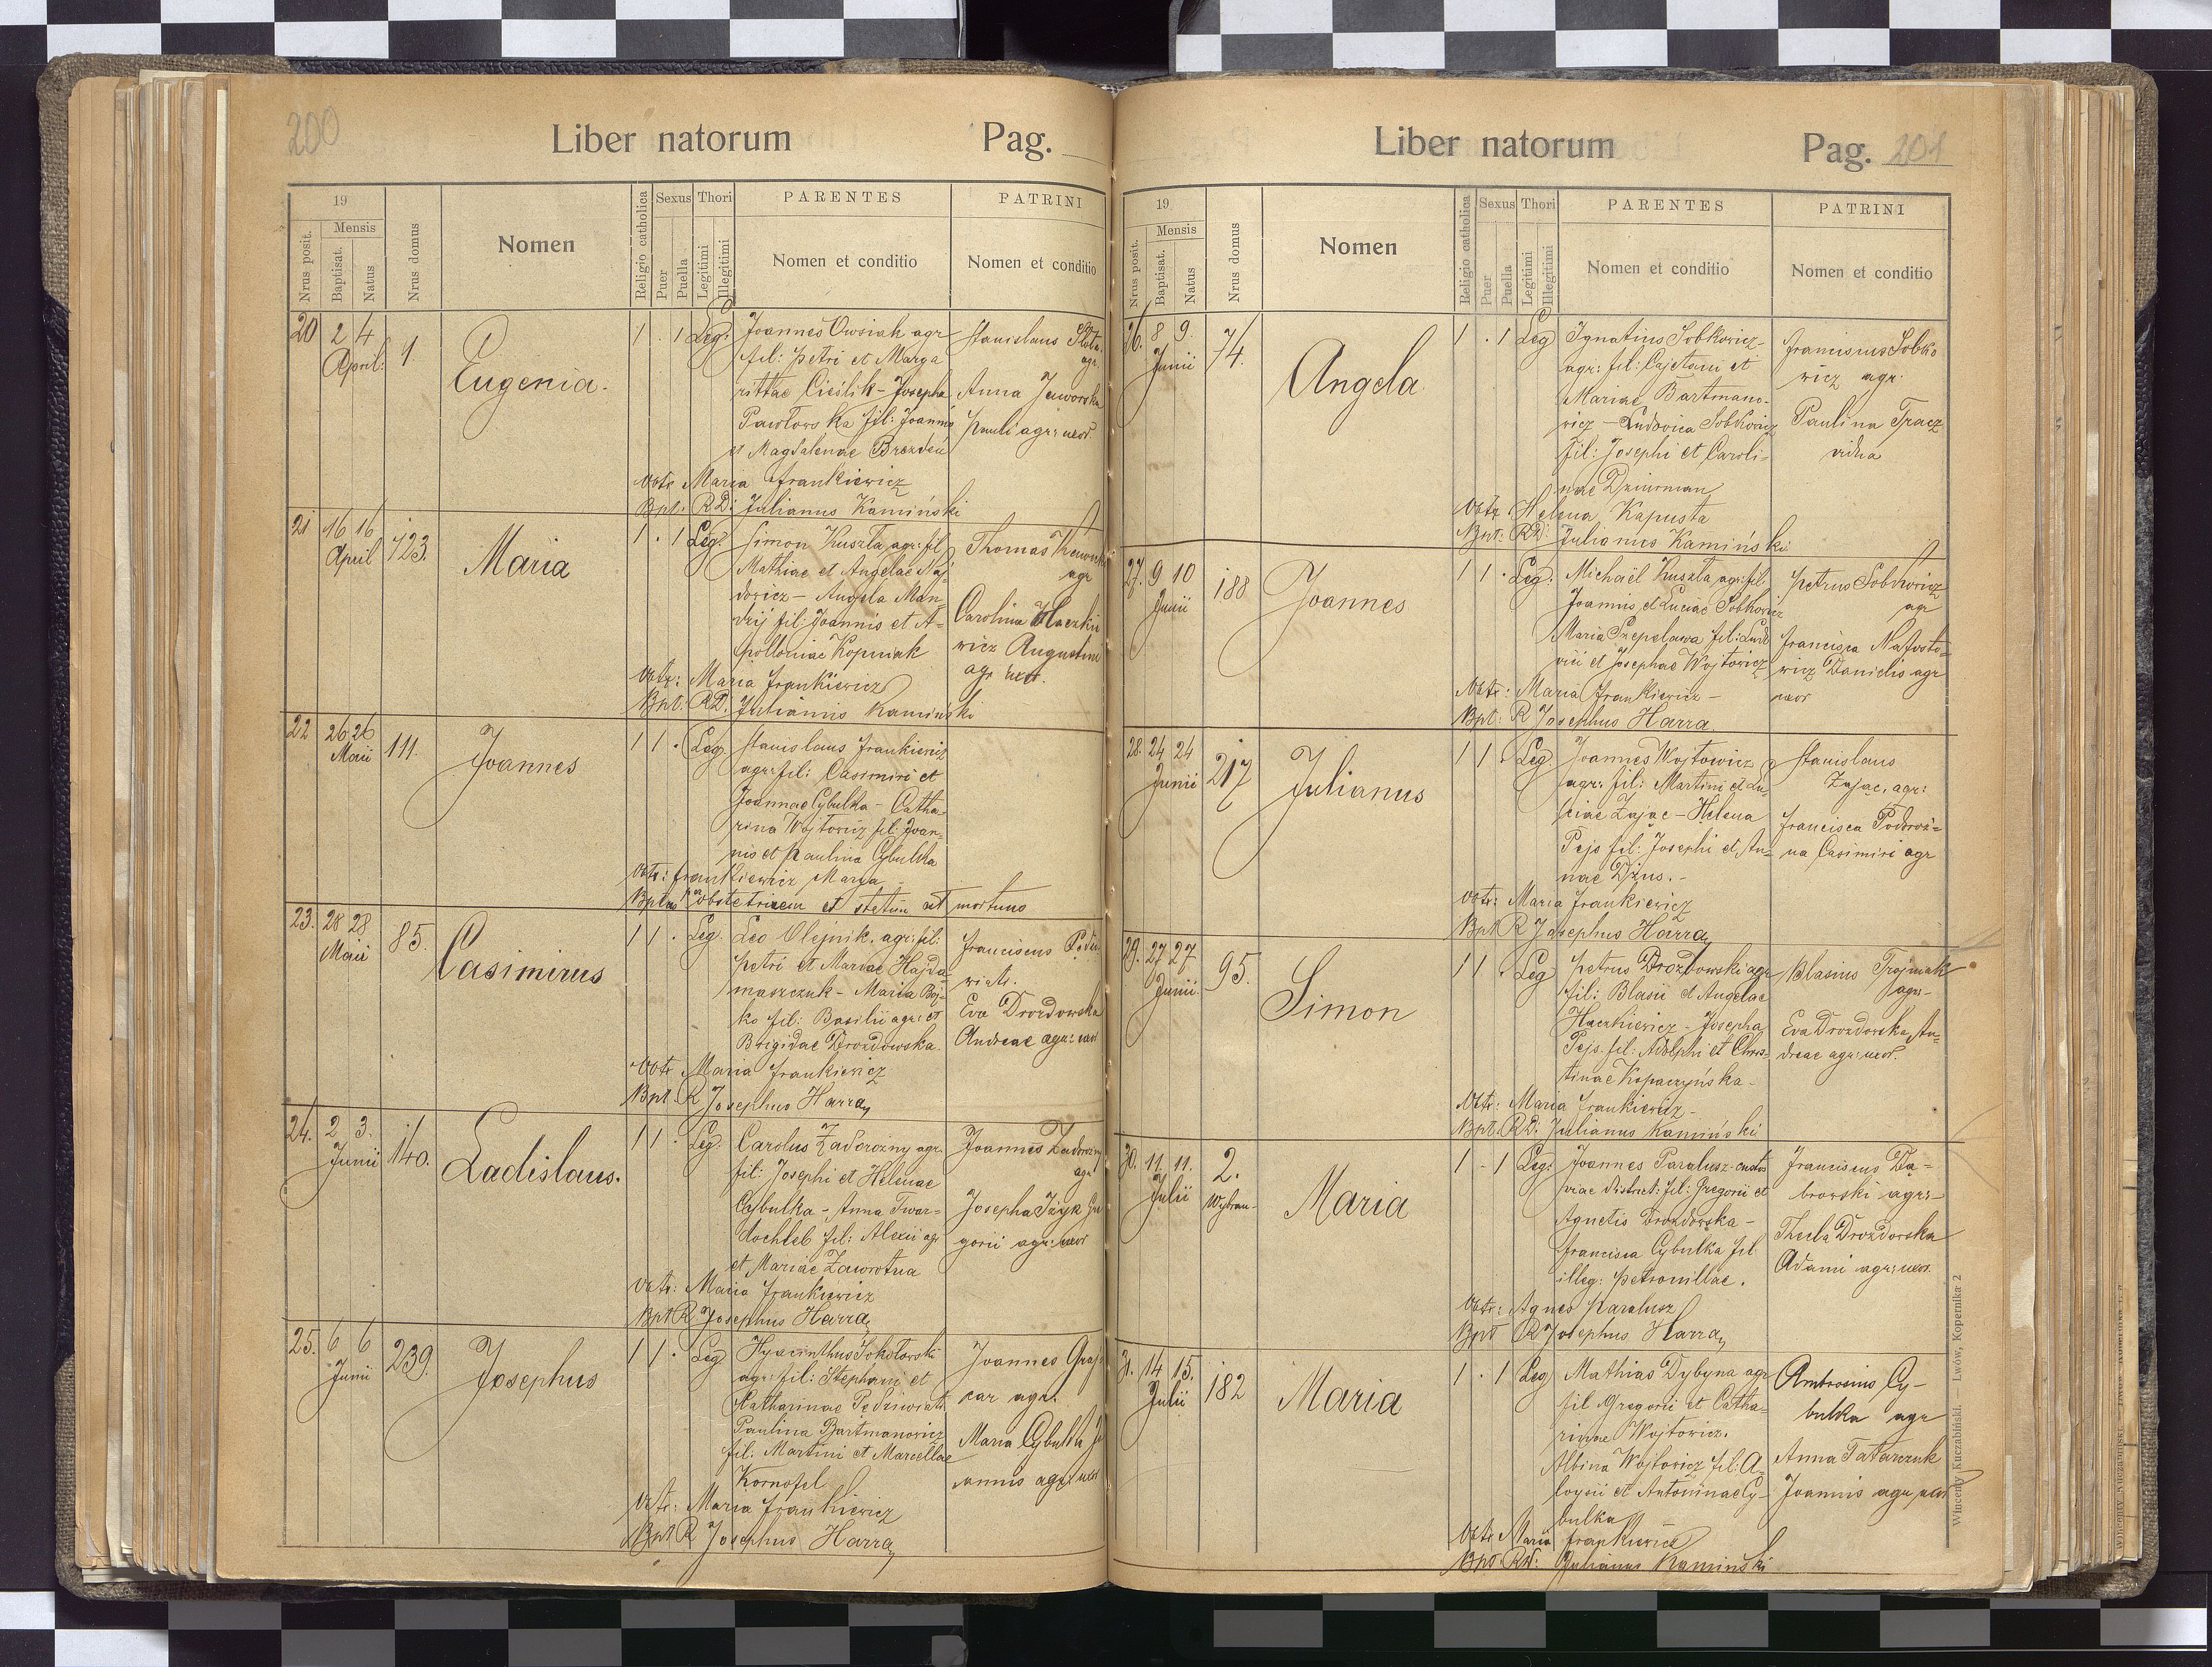 200
Liber natorum
Pag.
19
Mensis
Nrus posit.
Baptisat.
Natus
Nrus domus
Nomen
Religio catholica
Sexus
Puer
Puella
Thori
Legitimi
Illegitimi
PARENTES
Nomen et conditio
PATRINI
Nomen et conditio
20
2 4
April:
1
Eugenia.
1 . 1 Leg.
Joannes Owsiak agr
fil: Petri et Marga
rittae Cieślik - Josepha
Pawłowska fil: Joannis
et Magdalenae Brezdeń
Stanislaus
agr.
Anna Jaworska
Pauli agr: uxor.
Obstr Maria Frankiewicz
Bpt: RD: Julianus Kamiński
21
16 16
April
123.
Maria
1 . 1 Leg.
Simon Kuszla agr: fil
Mathiae et Angelae Naj
dowicz - Angela Man
drij fil: Joannis et A=
polloniae Kopniak
Thomas
agr
Carolina
wicz Augustini
agr uxor.
Obstr: Maria Frankiewicz
Bpt: RD: Julianus Kamiński
22
26 26
Maii
111.
Joannes
1 1 . Leg.
Stanislaus Frankiewicz
agr: fil: Casimiri et
Joannae Cybulka - Catha
rina Wojtowicz fil: Joan
nis et Paulina Cybulka
Obstr: Frankiewicz Maria
obstetricem et statim mortuus
23.
28 28
Maii
85.
Casimirus
1 1 . Leg.
Leo Olejnik. agr: fil:
Petri et Mariae Hajda
maszczuk - Maria Boj-
ko fil: Basilii agr: et
Brigidae Drozdowska.
Franciscus
wiatr.
Eva Drozdowska
Andreae agr: uxor
Obstr Maria Frankiewicz
Bpt. R Josephus Harra
24.
2 3.
Junii
140.
Ladislaus.
1 1 . Leg.
Carolus Zadorozny agr.
fil: Josephi et Helenae
Cybulka - Anna Twar=
dochleb fil: Alexii agr
et Mariae Zawrotna
Joannes Zadorozny
agr
Josepha Iżyk Gre
gorii agr: uxor
Obstr: Maria Frankiewicz
Bpt R Josephus Harra
25.
6 6
Junii
239.
Josephus
1 1 . Leg
Hyacinthus Sokołowski
agr: fil: Stephani et
Katharinae Pędziwiatr
Paulina Bartmanowicz
fil: Martini et Marcellae
Kornofel
Joannes Graj
car agr.
Maria Cybulka Jo
annis agr: uxor
Obstr: Maria Frankiewicz
Bpt R Josephus Harra
Liber natorum
Pag. 201
19
Mensis
Nrus posit.
Baptisat.
Natus
Nrus domus
Nomen
Religio catholica
Sexus
Puer
Puella
Thori
Legitimi
Illegitimi
PARENTES
Nomen et conditio
PATRINI
Nomen et conditio
26.
8 9.
Junii
74.
Angela
1 . 1 Leg
Ignatius Sobkowicz-
agr: fil: Cajetani et
Mariae Bartmano-
wicz - Ludovica Sobkowicz
fil: Josephi et Caroli=
nae Dziurman
Franciscus Sobko
wicz agr:
Paulina Tracz
vidua
Obstr Helena Kapusta
Bpt: RD: Julianus Kamiński
27.
9 10
Junii
188
Joannes
1 1 . Leg.
Michaël Kuszla agr: fil
Joannis et Luciae Sobkowicz
Maria Szepelawa fil: Ludo
vici et Josephae Wojtowicz
Petrus Sobkowicz
agr
Francisca Nafosto=
wicz Danielis agr
uxor
Obstr: Maria Frankiewicz -
Bpt: R Josephus Harra
28.
24 24
Junii
217
Julianus
1 1 . Leg
Joannes Wojtowicz
agr: fil: Martini et Lu
ciae Zając - Helena
Pejs fil: Josephi et An=
nae Dżus. -
Stanislaus
Zając, agr:
Francisca Podoroż=
na Casimiri agr
Obstr: Maria Frankiewicz
Bpt R Josephus Harra
29.
27 27
Junii
95.
Simon
1 1 . Leg
Petrus Drozdowski agr
fil: Blasii et Angelae
Haczkiewicz - Josepha
Pejs. fil: Adolphi et Chris=
tinae Kopaczyńska -
Blasius Trojniak
agr -
Eva Drozdowska An=
dreae agr: uxor.
Obstr: Maria Frankiewicz -
Bpt. RD. Julianus Kamiński
30.
11. 11.
Julii
2.
Wybran-
Maria
1 - 1 Leg:
Joannes Paralusz - custos
viae district: fil: Gregorii et
Agnetis Drozdowska -
Francisca Cybulka fil
illeg: Petronillae.
Franciscus Dą=
browski agr: -
Thecla Drozdowska
Adami agr: uxor.
Obstr: Agnes Paralusz
Bpt R Josephus Harra
31.
14 15.
Julii
182
Maria
1 . 1 Leg
Mathias Dybyna agr
fil Gregorii et Catha=
rinae Wojtowicz.
Albina Wojtowicz fil: A=
loysii et Antoninae Cy-
bulka
Ambrosius Cy-
bulka agr
Anna Tatarczuk
Joannis agr. uxor
Obstr Maria Frankiewicz
Bpt: RD: Julianus Kamiński
Wincenty Kuczabiński. — Lwów, Kopernika 2